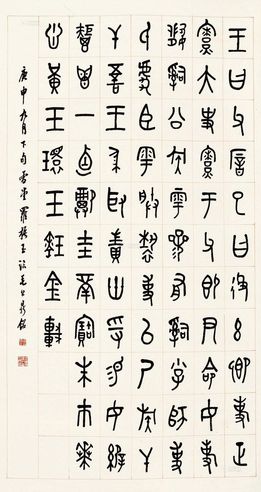 王曰父厝巳曰彶茲卿事
寮大史寮于父即尹命女
𤔲公族雩參有𤔲小子師
氏虎臣雩朕褻事以乃族
干吾王身取賁卅寽易女
鬯一卣祼圭瓚寶朱巿
黃玉環玉金車
庚申九月下旬雪堂羅振玉臨毛公鼎銘